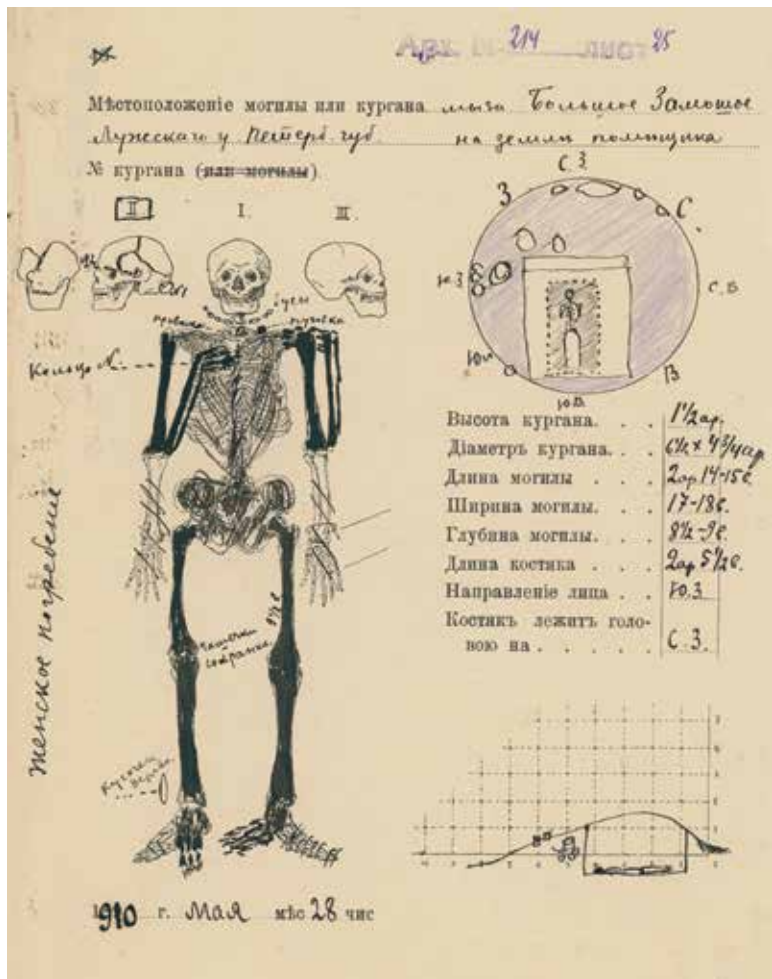 Арх. № 214 ЛИСТ 25
Мѣстоположеніе могилы или кургана мыза Большое Замошье
Лужскаго у Петерб. губ. на земли помещика
№ кургана (или могилы)
II I. III.
С.З.
З С
Ю.З С.В
Ю В
Ю.В
бусы
пуговка
Кольцо №
Женское погребение
Высота кургана. . . 1 1/2 ар.
Діаметръ кургана. . . 6 1/2 x 4 3/4 ар
Длина могилы . . . 2 ар 14-15 в.
Ширина могилы. . . 17-18 в.
Глубина могилы. . . 8 1/2-9 в.
Длина костяка . . . 2 ар 5 1/2 в.
Направленіе лица . . Ю.З
Костякъ лежитъ голо-
вою на . . . . . С.З.
чашечки
собраны
1910 г. Мая мѣс 28 чис